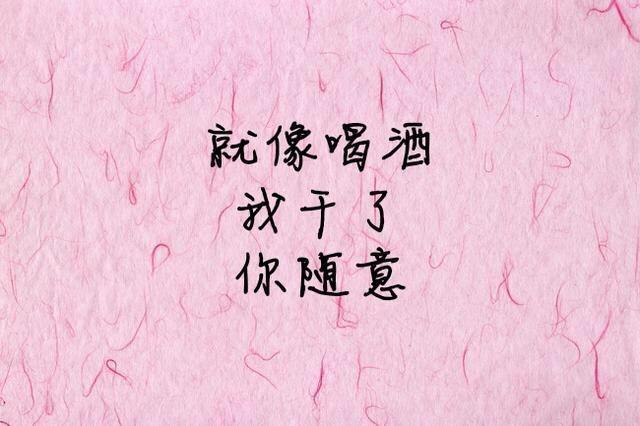 就像喝酒
我干了
你随意